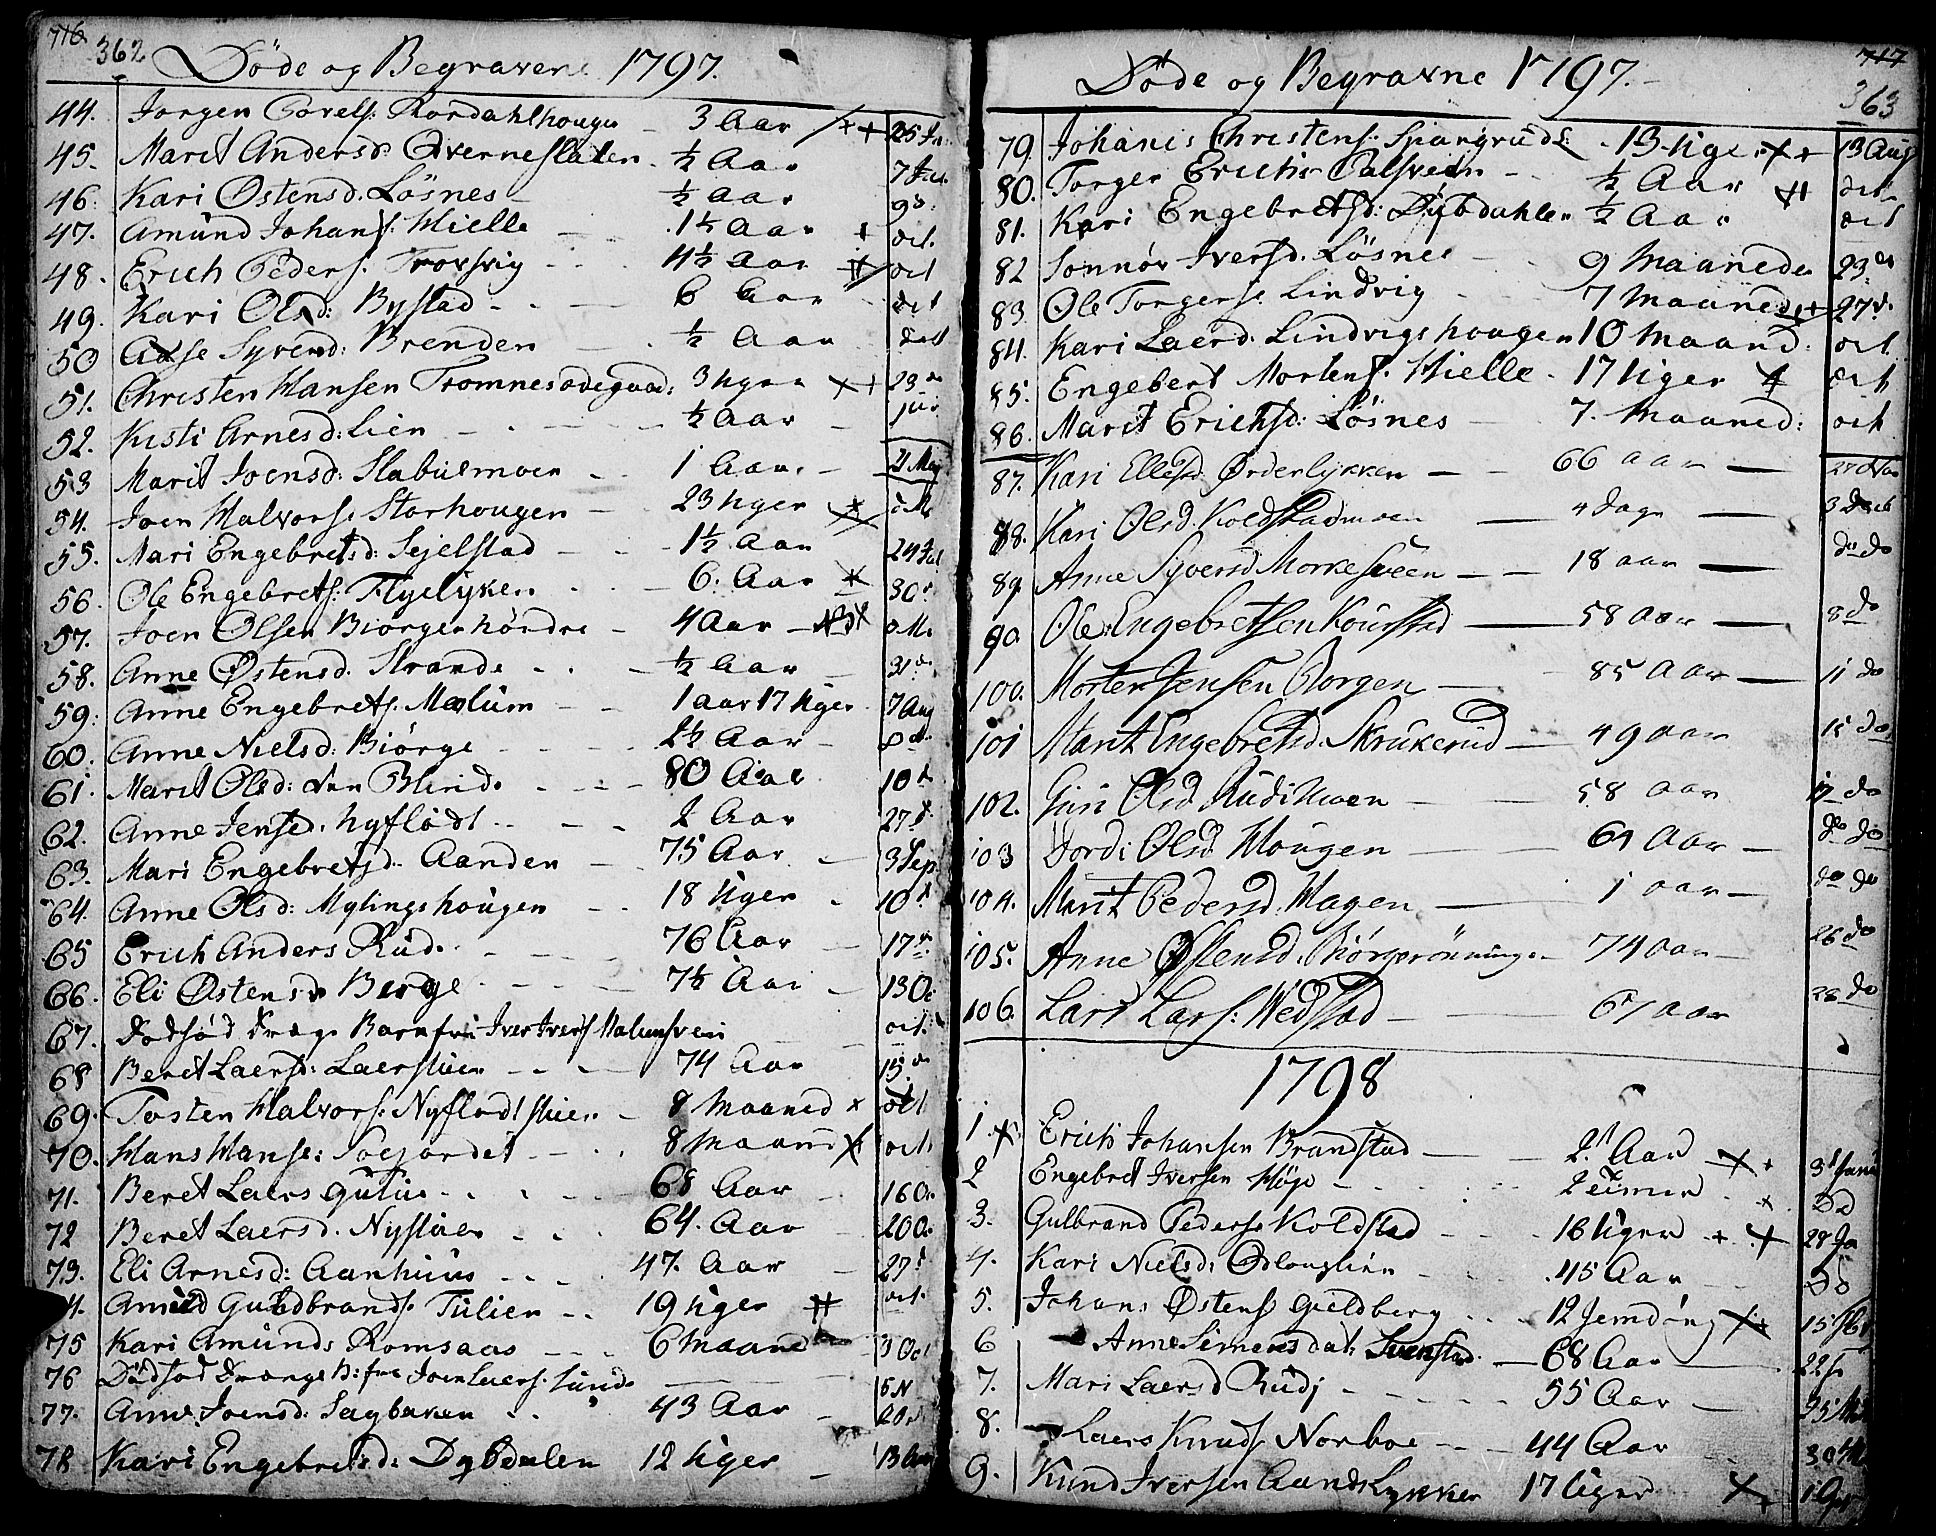 716
362
Döde og Begravene 1797.
44. Jorgen Rordahlhougen 3 Aar 25 Ju
45. Marit Andersd: Overneslaten ½ Aar 7 Jul
46. Kari Østensd. Lösnes ½ Aar 9d.
47. Amund Johans. Hielle 1½ Aar oct.
48. Erich Peders. 4½ Aar oct
49. Kari Olsd: Bystad 6 Aar oct
50 Aase Syvend: Brenden ½ Aar
51. Christen Hansen Tromnesødegaard: 3 Uger 23
52. Kisti Arnesd: Lien ½ Aar
53 Marit Joensd: Slabuemoen 1 Aar 21 May
54. Joen Halvors. Storhougen 23 Uger
55. Mari Engebretsd: Sejelstad 1½ Aar 24 Jul
56. Ole Engebrets. Flyelyken 6. Aar 30
57. Joen Olsen Biörgenhöndre 4 Aar
58. Anne Østensd. Strande ½ Aar 31
59. Anne Engebrets. Malum 1 aar 17 Uger 7 Aug
60. Anne Nielsd: Biörge 2½ Aar
61. Marit Olsd: den Blinde 80 Aar 10
62. Anne Jensd. Nyflödt 2 Aar 27
63. Mari Engebretsd: Aanden 75 Aar 3 Sep
64. Anne Olsd: Mylingshougen 18 Uger 10
65 Erich Anders Rud 76 Aar 17
66. Eli Østensd Berge 7½ Aar 13 Oc
67. Dödföd Drenge Barn fra Iver Ivers Malumsveen oct.
68 Beret Laersd: Laerstuen 74 Aar 15
69. Tosten Halvors: Nyflodtstuen 8 Maaned oct
70. Hans Hanse: Soejordet 8 Maaned oct
71. Beret Laers 68 Aar 16 Oc
72 Beret Laersd. Nystuen 64. Aar 20 Oc
73. Eli Arnesd: Aanhuus 47. Aar 27
4. Amund Guldbrands. Tulien 19 Uger oct.
75 Kari Amunds Romsaas 6 Maaned 3 Oct
76 Dödföd Drenge B: fra Joen Laers: Lunde 5 N
77. Anne Joensd: Sagbaken 43 Aar 20
78 Kari Engebretsd: Dybdalen 12 Uger 13 Aug
717
363
Döde og Begravne 1797.
79. Johanis Christens: Spangrud 13 Uger 13 Aug
80. Torger Erichs Calsveen ½ Aar oct
81. Kari Engebretsd: Dybdahlen ½ Aar oct
82 Sonnöv Iversd. Lösnes 9 Maaneder 23
83 Ole Torgerse Lindvig 7 Maaned 27
84. Kari Laersd. Lindvigshougen 10 Maand: oct
85. Engebert Mortens. Hielle 17 Uger oct
86. Marit Erichsd: Lösnes 7. Maaned: oct
87. Kari Ellefsd Ørderlykken 66 aar
88. Kari Olsd. Koldstadmoen 4 dage 3
89. Anne Syversd Morkesveen 18 aar do do
90. Ole Engebretsen Kourstad 58 aar 8 do
100. Morten Jensen Borgen 85 aar 11 do
101 Marit Engebretsd. Skrukerud 49 aar 15 do
102. Guri Olsd Rudi Moen 58 aar 17 do
103 Jordi Olsd Hougen 69 Aar do do
104. Marit Pedersd: Hagen 1 aar do do
105. Anne Østensd. 74 aar 26 do
106. Lars Lars: Wedstad 67 aar 28 do
1798
1. Erich Johansen Brandstad 21 Aar 3 Janu
2 Engebret Iversen Höge 2 timer Do
3. Gulbrand Peders. Koldstad 16 Uger 28 Ja
4. Kari Nielsd: Odlouglien 45 Aar Do
5. Johans Østens gieldberg 12 15
6 Anne Simensdat. Svenstad 68 Aar 22
7. Mari Laersd Rudj 55 Aar 25
8. Laers Knuds Norboe 44 Aar 30
9. Knud Iversen Aandslykken 17 Uger 1